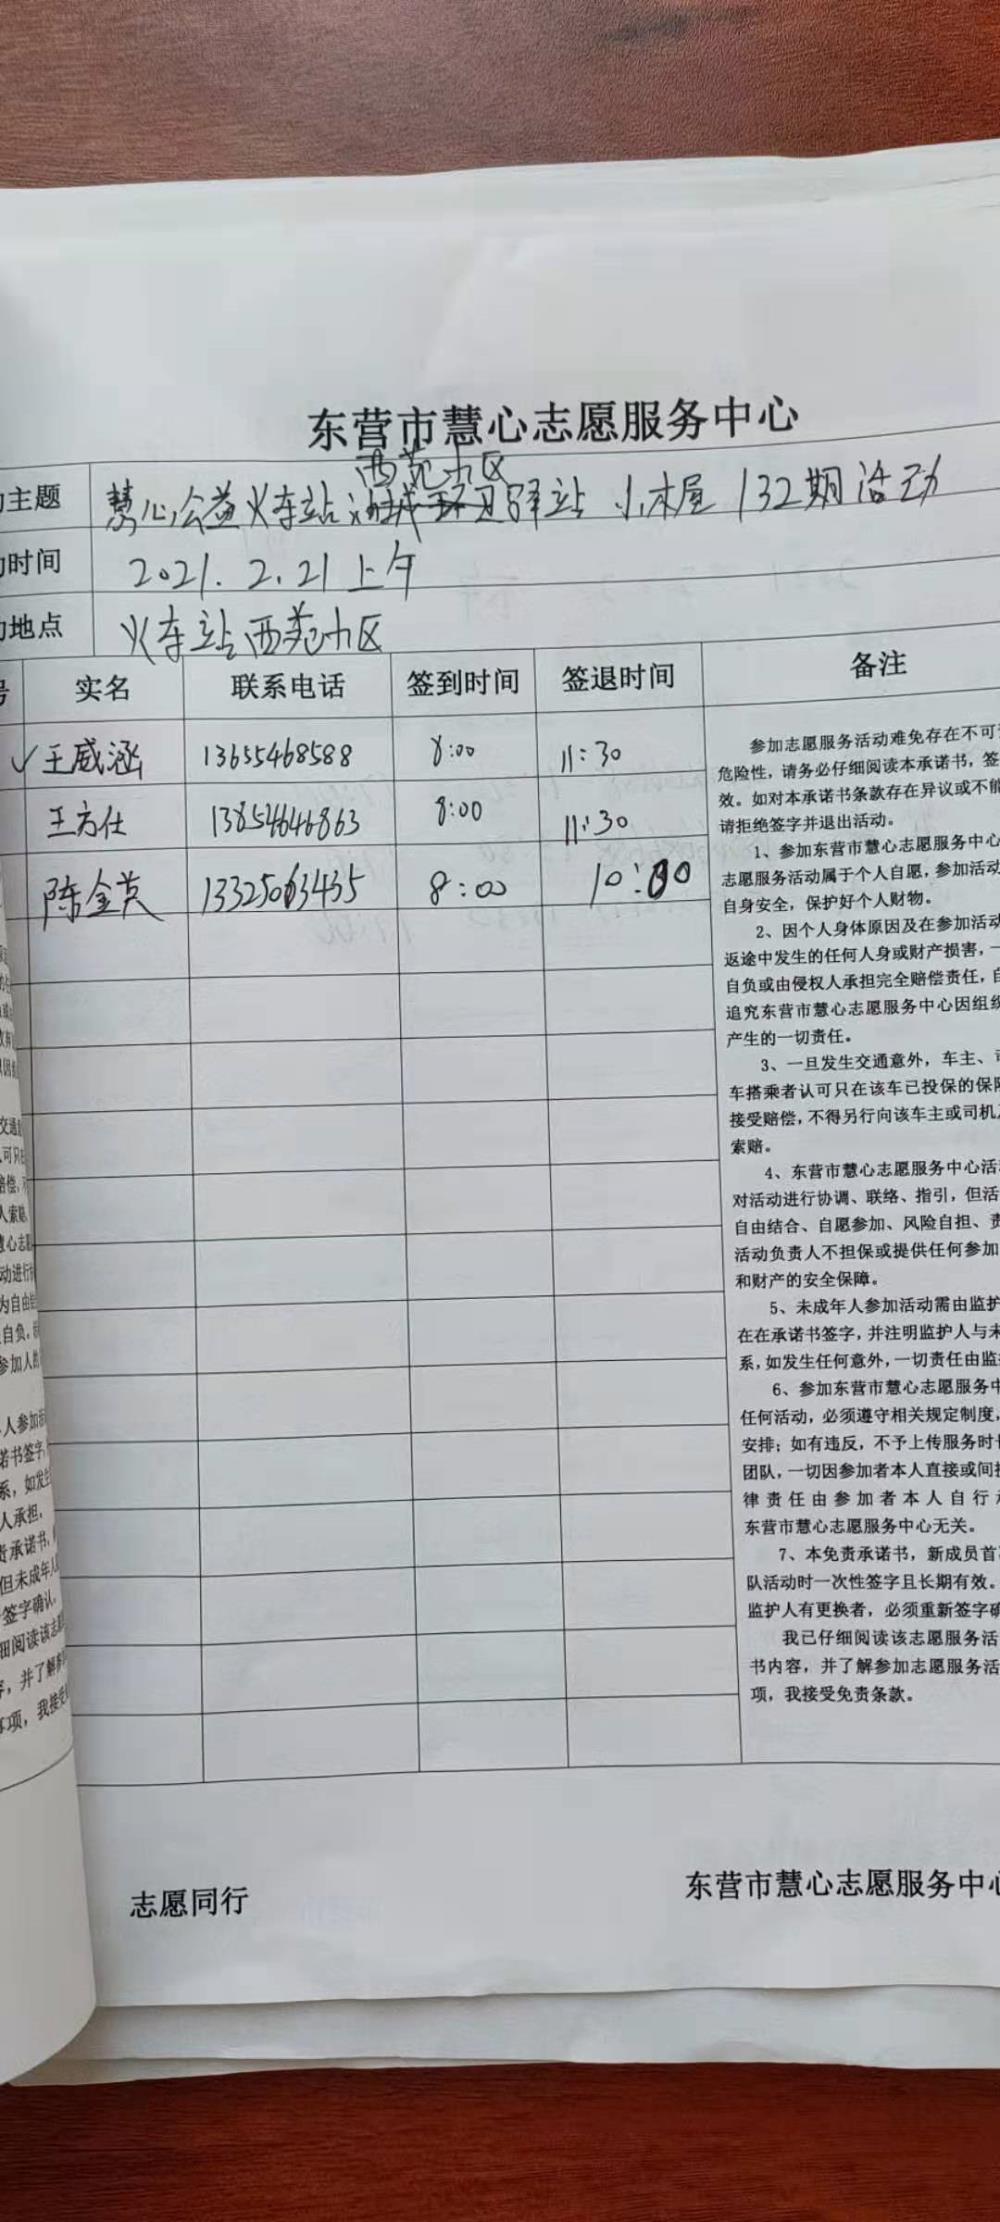 东营市慧心志愿服务中心
西苑小区
主题 慧心公益火车站 驿站 小木屋 132期活动
时间 2021.2.21上午
地点 火车站西苑小区
号 实名 联系电话 签到时间 签退时间 备注
✓王威涵 13655468588 8:00 11:30
王方仕 13854646863 8:00 11:30
陈金英 13325063435 8:00 10:00
参加志愿服务活动难免存在不可
危险性，请务必仔细阅读本承诺书，签
效。如对本承诺书条款存在异议或不能
请拒绝签字并退出活动。
1、参加东营市慧心志愿服务中心
志愿服务活动属于个人自愿，参加活动
自身安全，保护好个人财物。
2、因个人身体原因及在参加活动
返途中发生的任何人身或财产损害，一
自负或由侵权人承担完全赔偿责任，自
追究东营市慧心志愿服务中心因组织
产生的一切责任。
3、一旦发生交通意外，车主、司
车搭乘者认可只在该车已投保的保险
接受赔偿，不得另行向该车主或司机
索赔。
4、东营市慧心志愿服务中心活
对活动进行协调、联络、指引，但活
自由结合、自愿参加、风险自担、责
活动负责人不担保或提供任何参加
和财产的安全保障。
5、未成年人参加活动需由监护
在在承诺书签字，并注明监护人与未
系，如发生任何意外，一切责任由监
6、参加东营市慧心志愿服务中
任何活动，必须遵守相关规定制度，
安排；如有违反，不予上传服务时
团队，一切因参加者本人直接或间接
律责任由参加者本人自行
东营市慧心志愿服务中心无关。
7、本免责承诺书，新成员首
队活动时一次性签字且长期有效。
监护人有更换者，必须重新签字确
我已仔细阅读该志愿服务活
书内容，并了解参加志愿服务活
项，我接受免责条款。
志愿同行 东营市慧心志愿服务中心